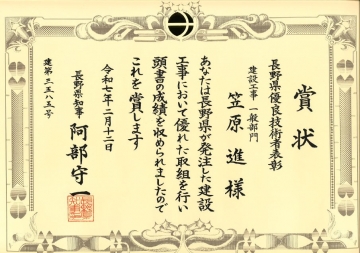 賞状
長野県優良技術者表彰
建設工事 一般部門
笠原進様
あなたは長野県が発注した建設
工事において優れた取組を行い
頭書の成績を収められましたので
これを賞します
令和七年二月十二日
長野県知事 阿部守一
建第三五八五号